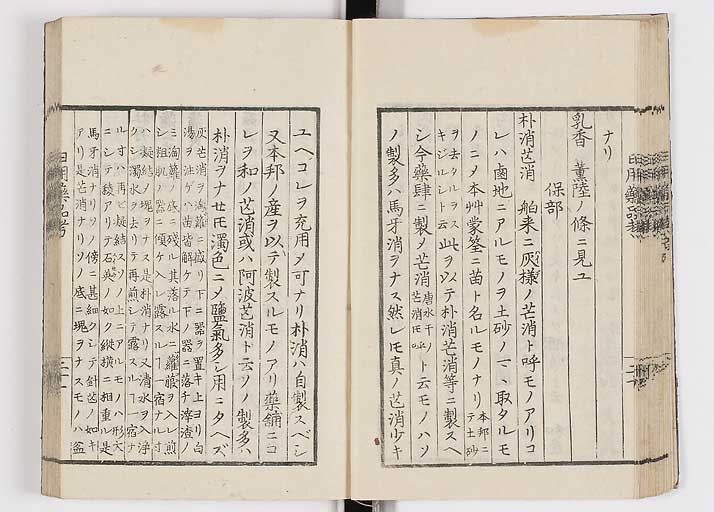 ナリ
乳香　薫陸ノ條ニ見ユ
保部
朴消芒消　舶来ニ灰様ノ芒消ト呼モノアリコ
レハ鹵地ニアルモノヲ土砂ノマヽ取タルモ
ノニメ本艸蒙筌ニ苗ト名ルモノナリ本邦ニテ土砂
ヲ去タルヲスキジルシト云此ヲ以テ朴消芒消等ニ製スヘ
シ今藥肆ニ製メ芒消唐水干ノ芒消ト呼ト云モノハソ
ノ製多ハ馬牙消ヲナス然レモ真ノ芒消少キ
ユヘコレヲ充用メ可ナリ朴消ハ自製スベシ
又本邦ノ産ヲ以テ製スルモノアリ藥舗ニコ
レヲ和ノ芒消或ハ阿波芒消ト云ソノ製多ハ
朴消ヲナせモ濁色ニメ鹽氣多シ用ニタヘズ
灰芒消ヲ淘籮ニ盛リ下ニ器ヲ置キ上ヨリ白
湯ヲ注ゲハ苗皆解ケテ下ノ器ニ落チ滓渣ノ
ミ淘籮ノ底ニ残ル其落ル水ニ蘿蔔ヲ入レ煎
シ粗肌ノ器ニ傾ケ入レ露スルヿ一宿ナル寸
ハ凝結メ塊ヲナス是朴消ナリ又清水ヲ入浮
クシ濁水ヲ去リテ再煎シテ露スルヿ一宿ナ
ル寸ハ再ビ凝結スソノ上ニアルモノハ形大
ニシテ稜アリテ石英ノ如ク縱横ニ相重ル是
馬牙消ナリソノ傍ニ甚細クシテ針芒ノ如キ
アリ是芒消ナリソノ底ニ塊ヲナスモノハ盆
日用藥品考